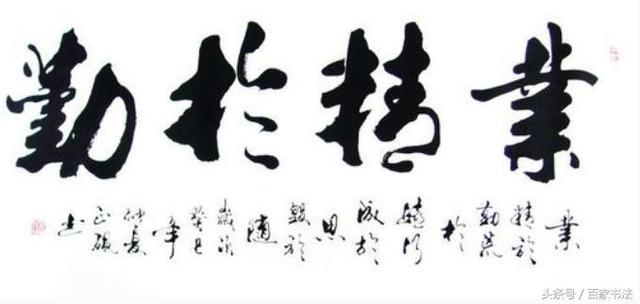 業精於勤
業
精於
勤荒
於
嬉行
成於
思
毀於
隨
歲次
癸巳
年
仲夏
书
头条号 / 百家书法